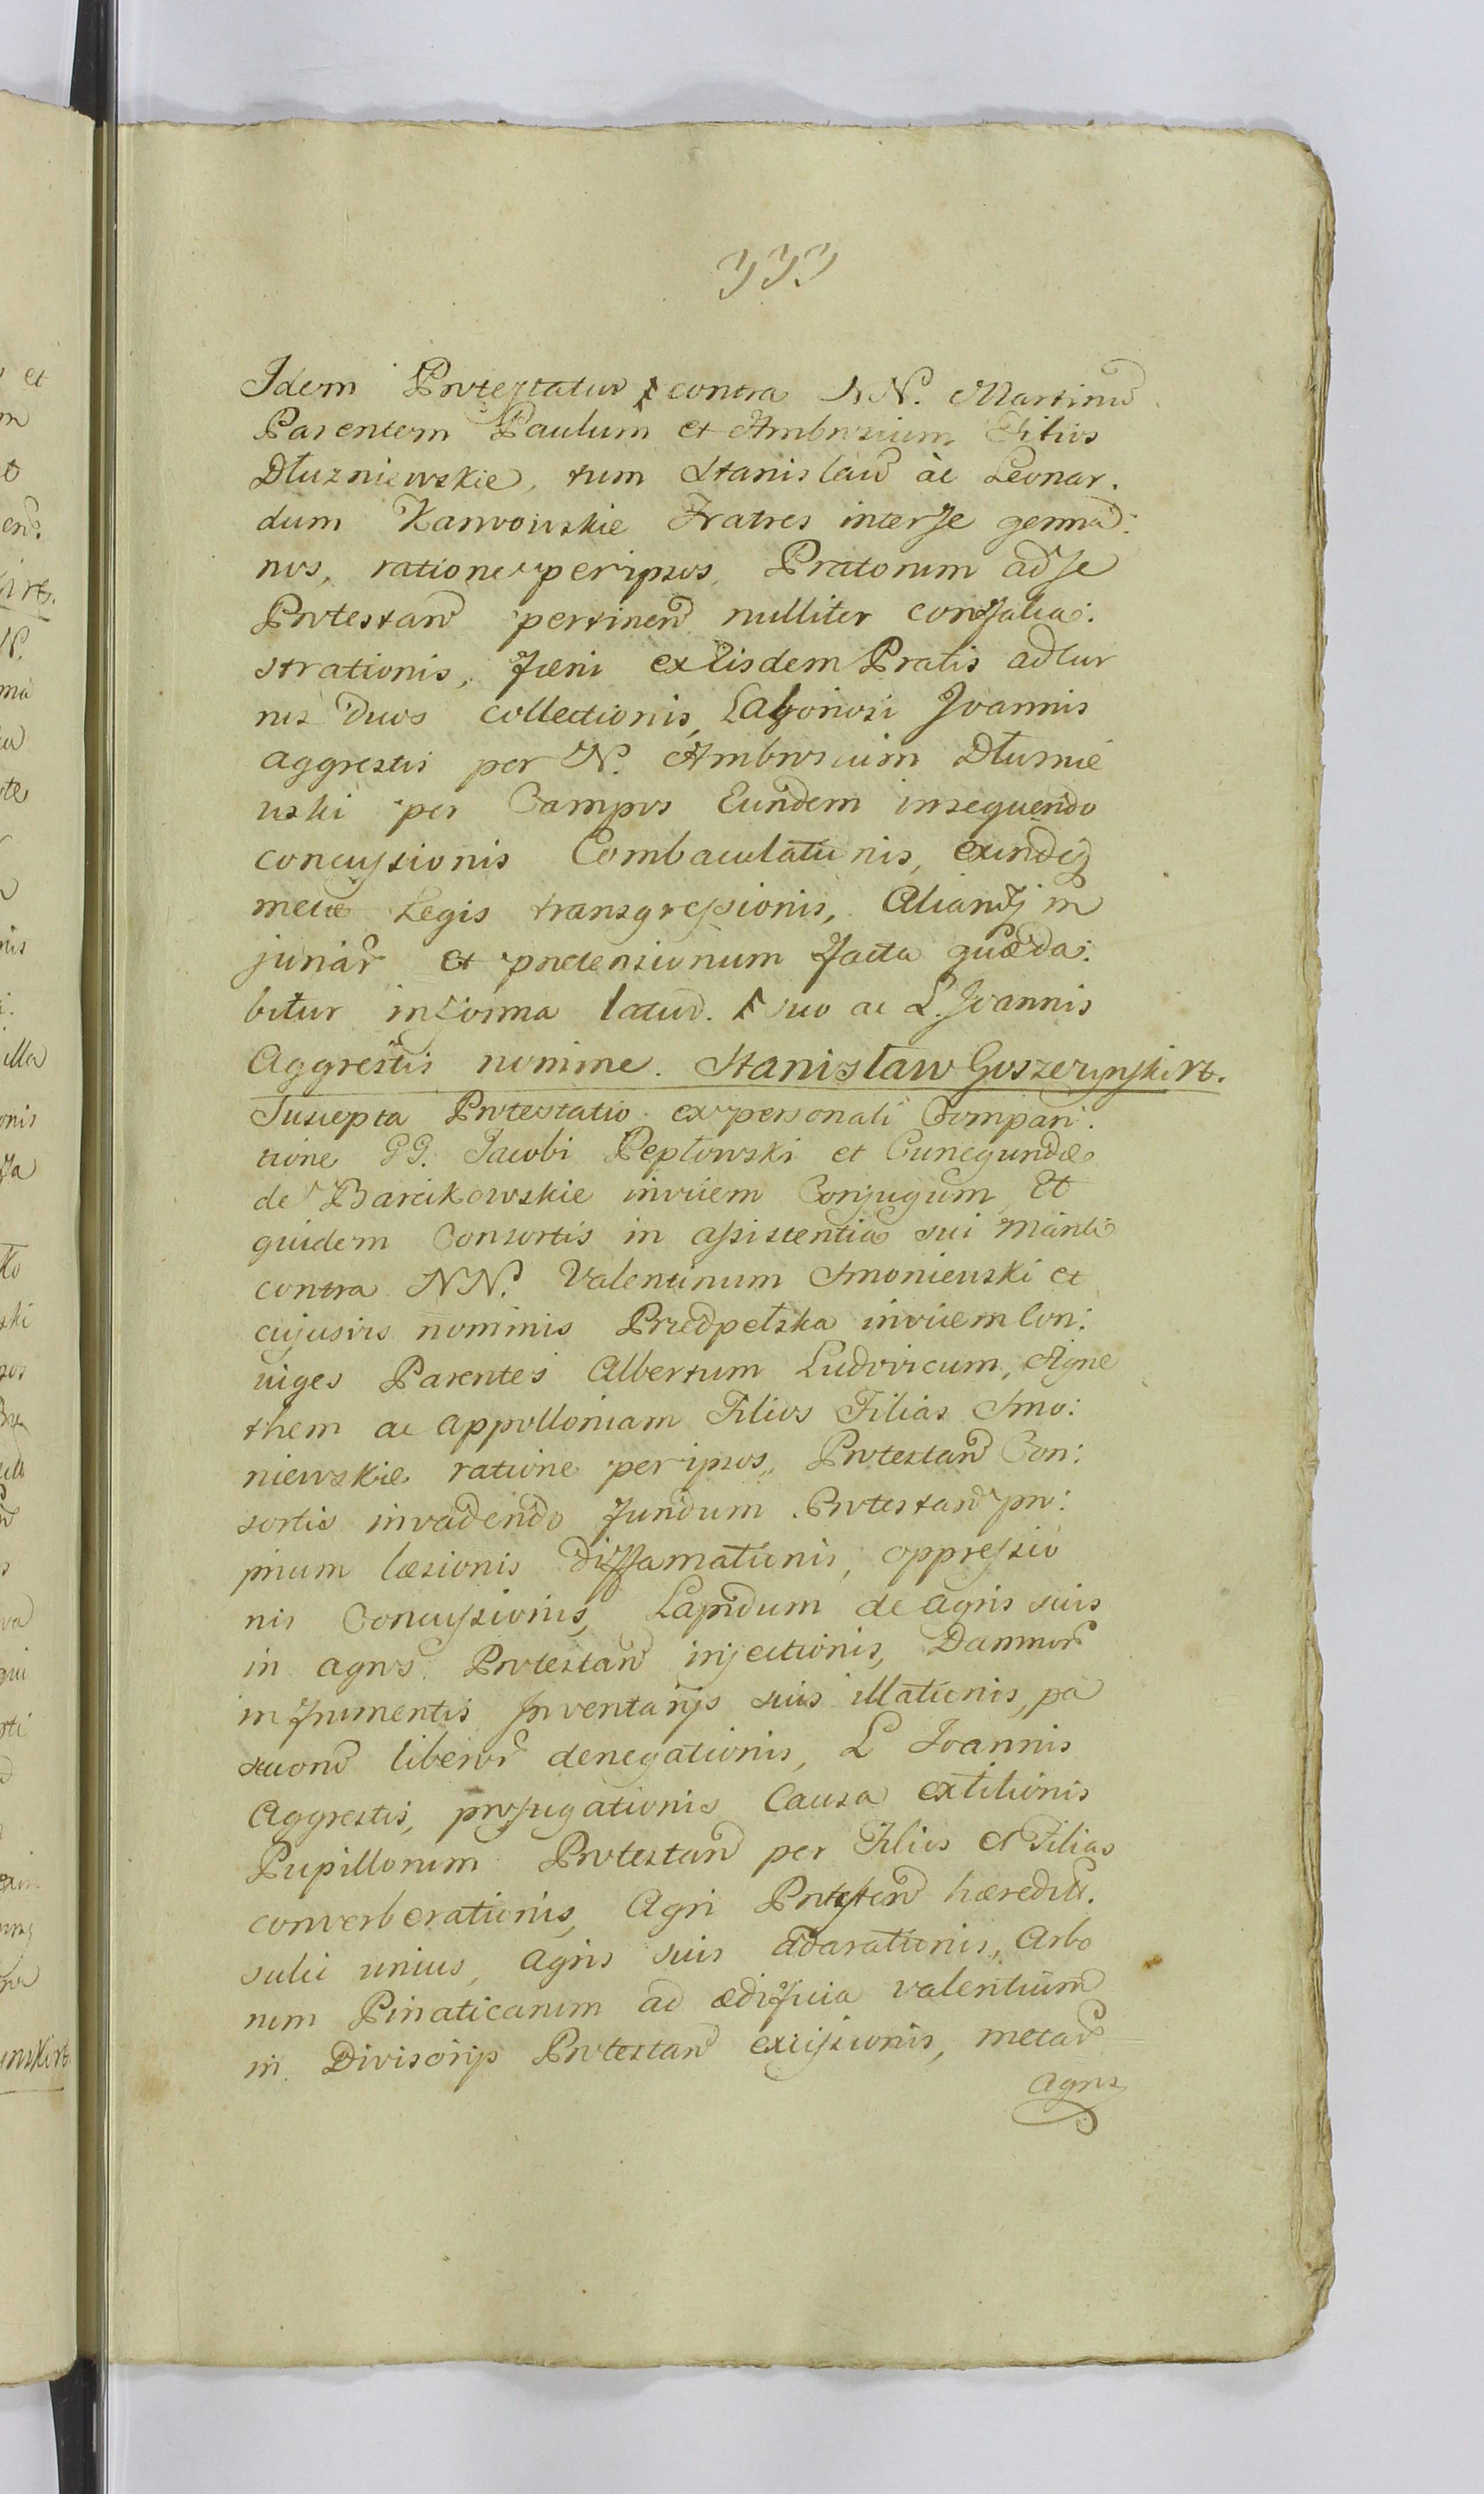 333
Idem Protestatur contra NN. Martinū
Parentem Paulum et Ambrosium Filios
Dłuzniewskie, tum Stanislaū ac Leonar.
dum Karwowskie Fratres inter se germa:
nos, ratione per ipsos, Pratorum ad se
Protestan̄ pertinen̄ nulliter confalca:
strationis, fæni ex iisdem Pratis ad cur
rus duos collectionis, Laboriosi Joannis
Aggrestis per N. Ambrosium Dłuznie
wski per Campos Eundem insequendo
concussionis Combaculationis, exindeq
metæ Legis transgressionis, Aliarūq in
juriar̄ et prætensionum facta quæ da:
bitur in forma latiu. suo ac L. Joannis
Aggrestis nomine. Stanisław Goszczynski rt.
Suscepta Protestatio ex personali Compari:
tione GG. Jacobi Pepłowski et Cunegundæ
de Barcikowskie invicem Conjugum, Et
quidem Consortis in assistentia sui Mariti
contra NN. Valentinum Smoniewski et
cujusvis nominis Przedpełska invicem Con:
iuges Parentes Albertum Ludovicum, Agne
them ac Appolloniam Filios Filias Smo:
niewskie ratione per ipsos, Protestan̄ Con:
sortis invadendo fundum Protestan̄ pro:
prium læsionis diffamationis, oppressio
nis Concussionis, Lapidum de agris suis
in agros Protestan̄ injectionis, Damnor̄
in frumentis Inventarijs suis illationis, pa
scuorū liberor̄ denegationis, L Joannis
Aggrestis, profugationis Causa extitionis
Pupillorum Protestan̄ per Filios et Filias
converberationis, Agri Protestan̄ hæredit.
sulci unius, Agris suis adarationis, Arbo
rum Pinaticarum ad ædificia valentium
in Divisorijs Protestan̄ excisionis, metar̄
agros